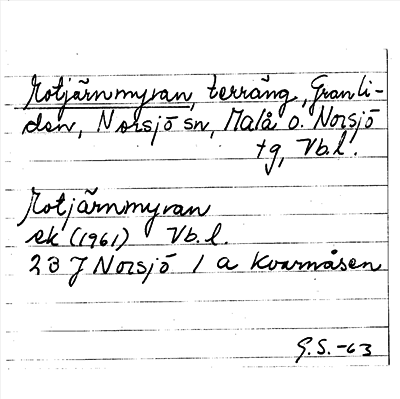 Rotjärnmyran, terräng, Granli-
den, Norsjö sn, Malå o. Norsjö
tg, Vb.l.
Rotjärnmyran
ek (1961) Vb.l.
23 J Norsjö 1 a Kvarnåsen
G.S. -63